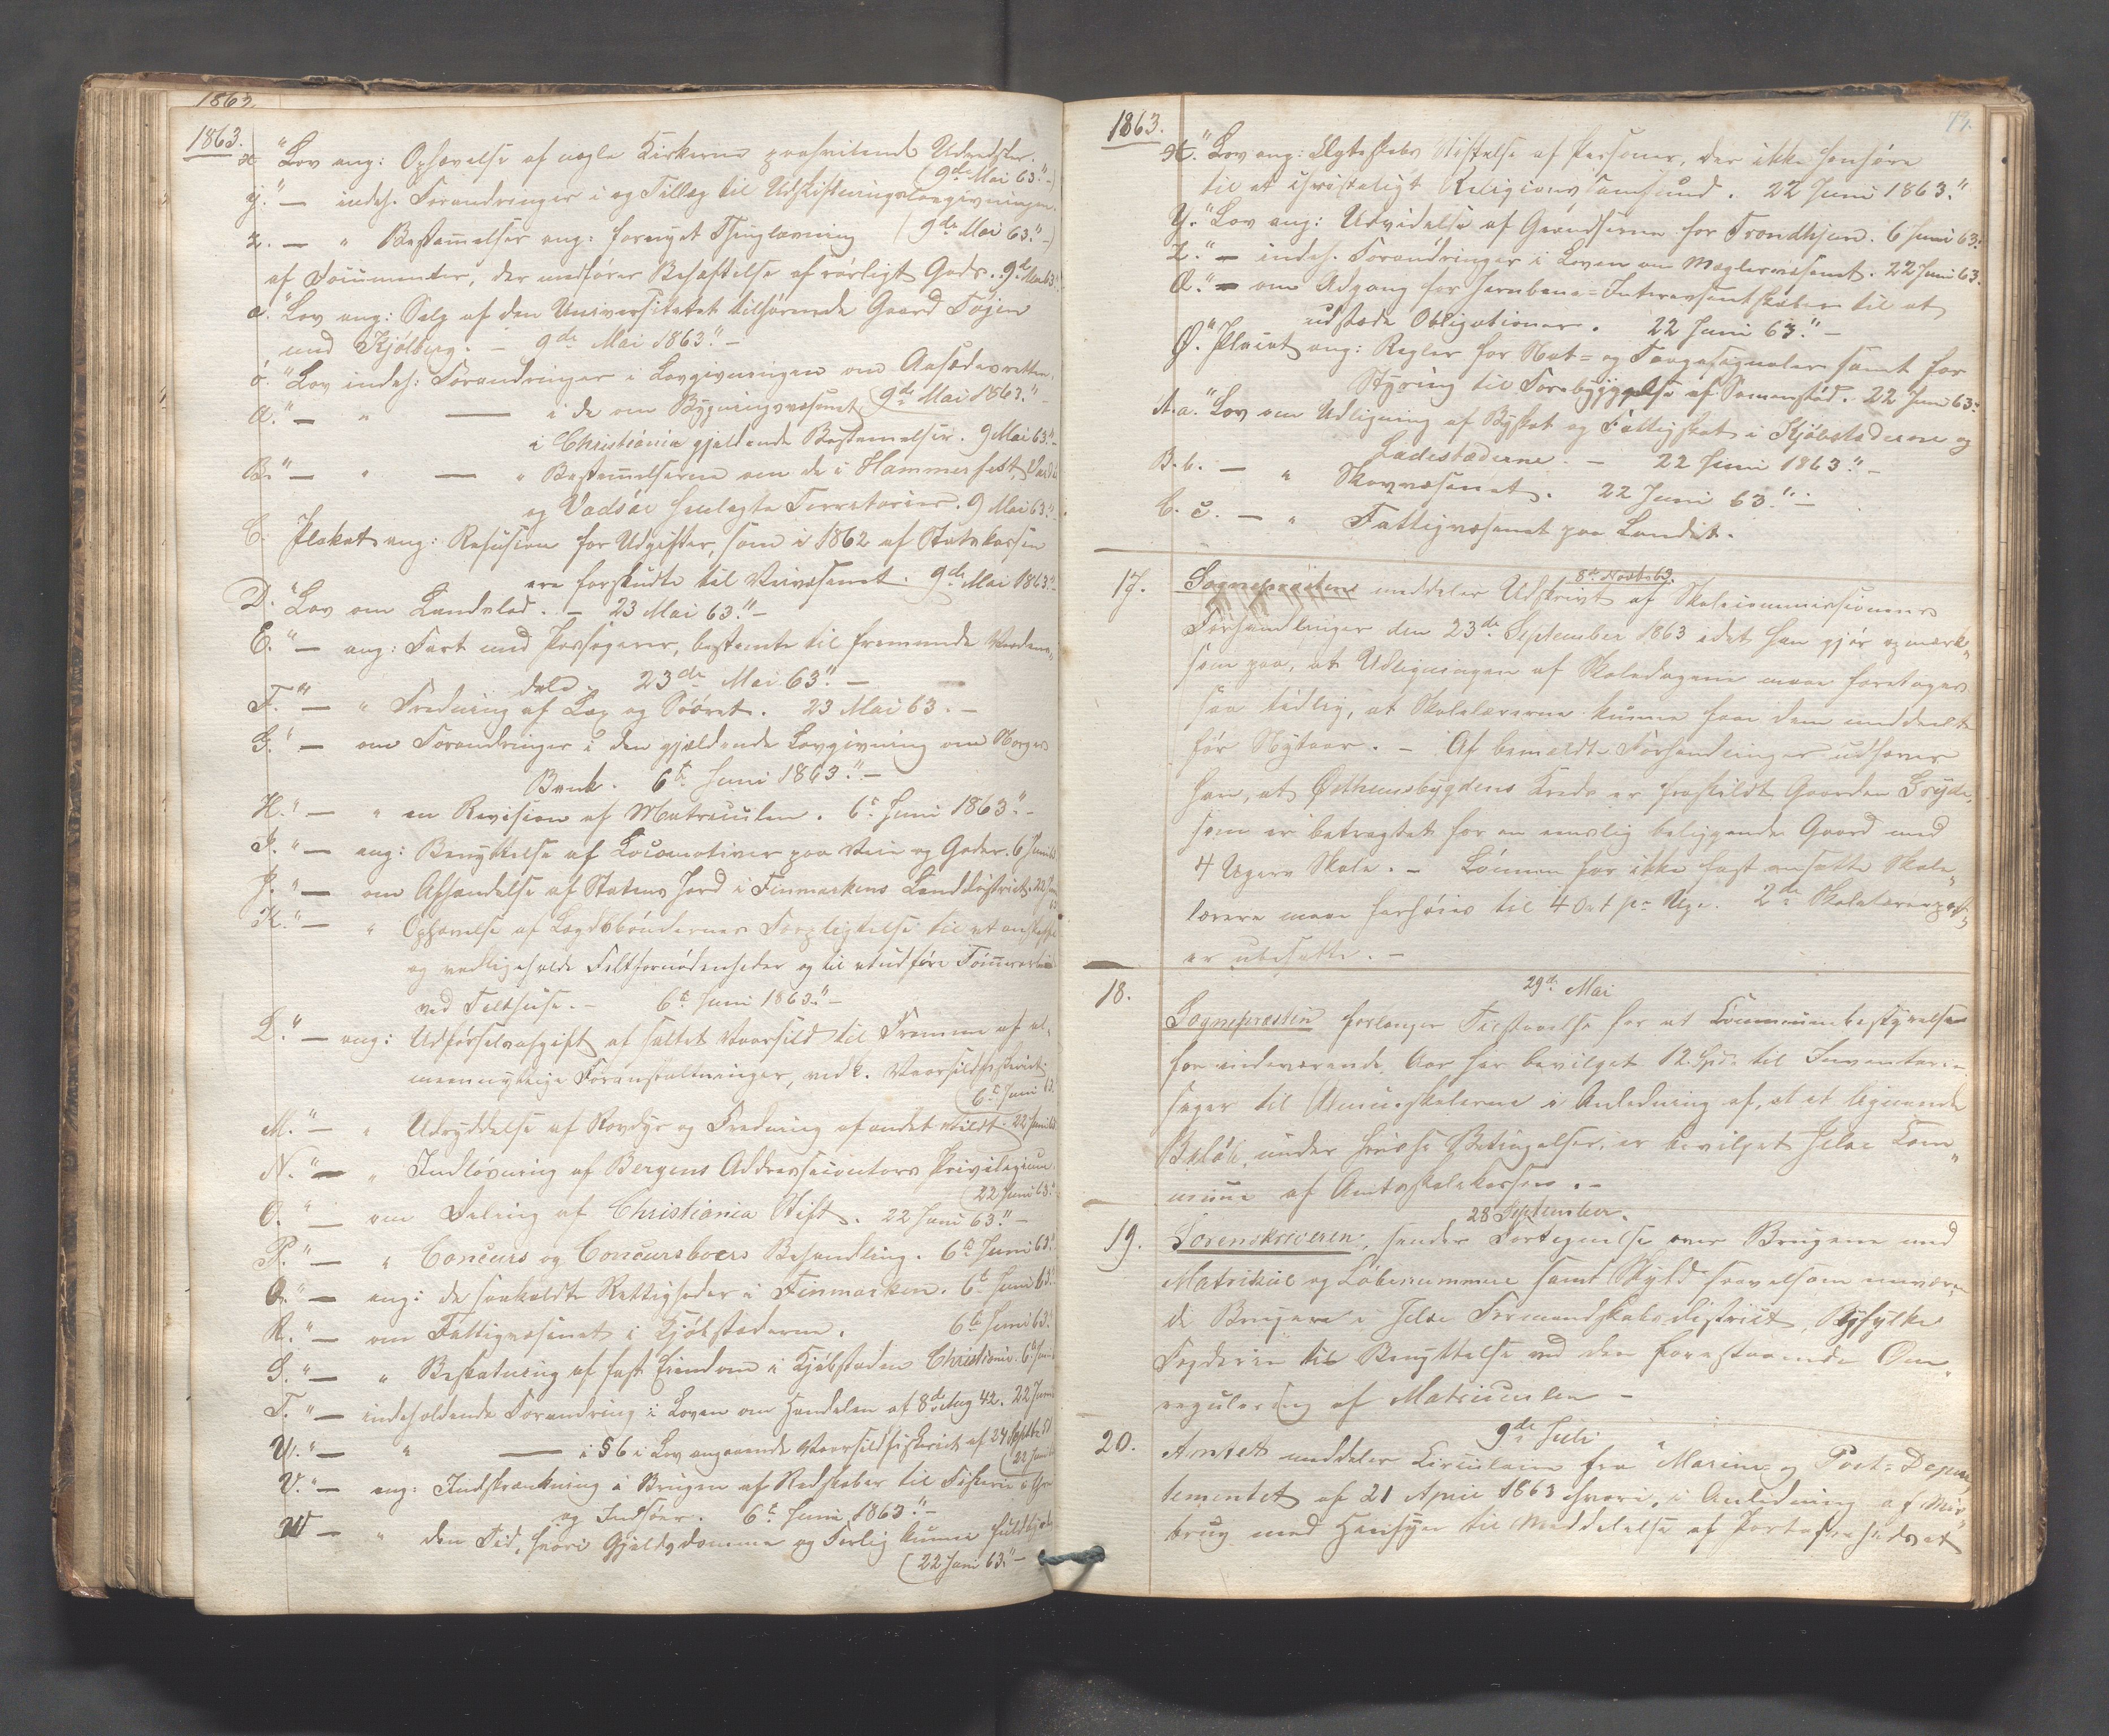 1863.
1863.
x. "Lov ang: Ophævelse af nogle Kirkerne paahvilende Udredsler.
(9de Mai 63."-)
y. "— indeh. Forandringer i og Tillæg til Udskiftningslovgivningen.
z. — " Bestemmelser ang: fornyet Thinglæsning (9de Mai 63."-)
af Documenter, der medfører Behæftelse af rørligt Gods. 9de Mai 63."
æ. "Lov ang: Salg af den Universitetet tilhørende Gaard Tøjen
med Kjølberg. — 9de Mai 1863."—
ø. "Lov indeh: Forandringer i Lovgivningen om Aasædesretten.
(9de Mai 1863."-
A. "— " — i de om Bygningsvæsenet
i Christiania gjældende Bestemmelser. 9 Mai 63."-
B. "— " — " Bestemmelserne om de i Hammerfest, Vardø
og Vadsøe henlagte Territorier. 9 Mai 63."-
C. Plakat ang: Refusion for Udgifter, som i 1862 af Statskassen
ere forskudte til Veivæsenet. 9de Mai 1863."-
D. "Lov om Landslod. — 23 Mai 63."—
E. "— ang: Fart med Passagerer, bestemte til fremmede Verdens„
dele. 23de Mai 63."—
F. "— " Fredning af Lax og Søøret. 23 Mai 63. —
G. "— om Forandringer i den gjældende Lovgivning om Norges
Bank. 6te Juni 1863."—
H. "— " en Revision af Matriculen. 6te Juni 1863."-
I. "— ang: Benyttelse af Locomotiver paa Veie og Gader. 6 Juni 63
J. "— om Afhændelse af Statens Jord i Finmarkens Landdistrict. 22 Juni
63
K. "— " Ophævelse af Lægdsbøndernes Forpligtelse til at anskaffe
og vedligeholde Telthornødenheder og til at udføre Tømmerarbeide
ved Telthuse. — 6te Juni 1863."—
L. "— ang: Udførselsafgift af saltet Vaarsild til Fremme af al„
meennyttige Foranstaltninger, vedk. Vaarsildfiskeriet.
(6te Juni 63.
M. "— " Udryddelse af Rovdyr og Fredning af andet Vildt. 22 Juni 63
N. "— " Indløsning af Bergens Addressecontors Privilegium.
(22 Juni 63."
O. "— om Deling af Christiania Stift. 22 Juni 63."—
P. "— " Concurs og Concursboers Behandling. 6te Juni 63."
Q. "— ang: de saakaldte Rettigheder i Finmarken. 6te Juni 63."
R. "— om Fattigvæsenet i Kjøbstæderne. 6te Juni 63."
S. "— " Beskatning af fast Eiendom i Kjøbstaden Christiania. 6te Juni
T. "— indeholdende Forandring i Loven om Handelen af 8de Aug 42. 22 Juni
U. "— " — i § 6 i Lov angaaende Vaarsildfiskeriet af 24 Septbr 51
(22 Juni 63
V. "— ang: Indskrænkning i Brugen af Redskaber til Fiskeri i Elve
og Indsøer. 6te Juni 1863."—
W — " den Tid, hvori Gjældsdomme og Forlig kunne fuldbyrdes
(22 Juni 63."—
1863.
13.
X. "Lov ang: Ægteskabs Stiftelse af Personer, der ikke henhøre
til et christeligt Religionssamfund. 22 Juni 1863."
Y. "Lov ang: Udvidelse af Grændserne for Trondhjem. 6 Juni 63."
Z. "— indeh. Forandringer i Loven om Mæglervæsenet. 22 Juni 63.
Æ. "— om Adgang for Jernbane-Interessentskaber til at
udstæde Obligationer. 22 Juni 63."—
Ø. "Placat ang: Regler for Nat- og Taagesignaler samt for
Styring til Forebyggelse af Sammenstød. 22 Juni 63."
A.a. "Lov om Udligning af Byskat og Fattigskat i Kjøbstæderne og
Ladestæderne. — 22 Juni 1863."—
B.b. — " Skovvæsenet. 22 Juni 63."—
C.c. — " Fattigvæsenet paa Landet.
8de Novbr 63.
17. Sognepræsten meddeler Udskrivt af Skolecommissionens
Forhandlinger den 23de September 1863 idet han gjør opmærk„
som paa, at Udligningen af Skoledagene maae foretages
saa tidlig, at Skolelærerne kunne faae dem meddeelt
før Nytaar. — Af bemeldte Forhandlinger udhæves
her, at Østhunsbygdens Kreds er fraskildt Gaarden Gryde,
som er betragtet for en enslig beliggende Gaard med
4 Ugers Skole. — Lønnen for ikke fast ansatte Skole„
lærere maae forhøies til 4 Ort pr Uge. 2de Skolelærerposter
er ubesatte. —
29de Mai
18. Sognepræsten forlanger Tilstaaelse for at Communebestyrelsen
for indeværende Aar har bevilget 12 Spd. til Inventarie„
sager til Almueskolerne i Anledning af, at et lignende
Beløb, under hvisse Betingelser, er bevilget Jelse Com„
mune af Amtsskolekassen. —
28 September.
19. Sorenskriveren, sender Fortegnelse over Brugene med
Matrikul og Løbenummere samt Skyld saavelsom nuværen„
de Brugere i Jelse Formandskabsdistrict, Ryfylke
Fogderie til Benyttelse ved den forestaaende Om„
regulering af Matriculen —
9de Juli
20. Amtet meddeler Circulaire fra Marine- og Post-Depar„
tementet af 21 April 1863 hvori, i Anledning af Mis„
brug med Hensyn til Meddelelse af Portofrihedsret